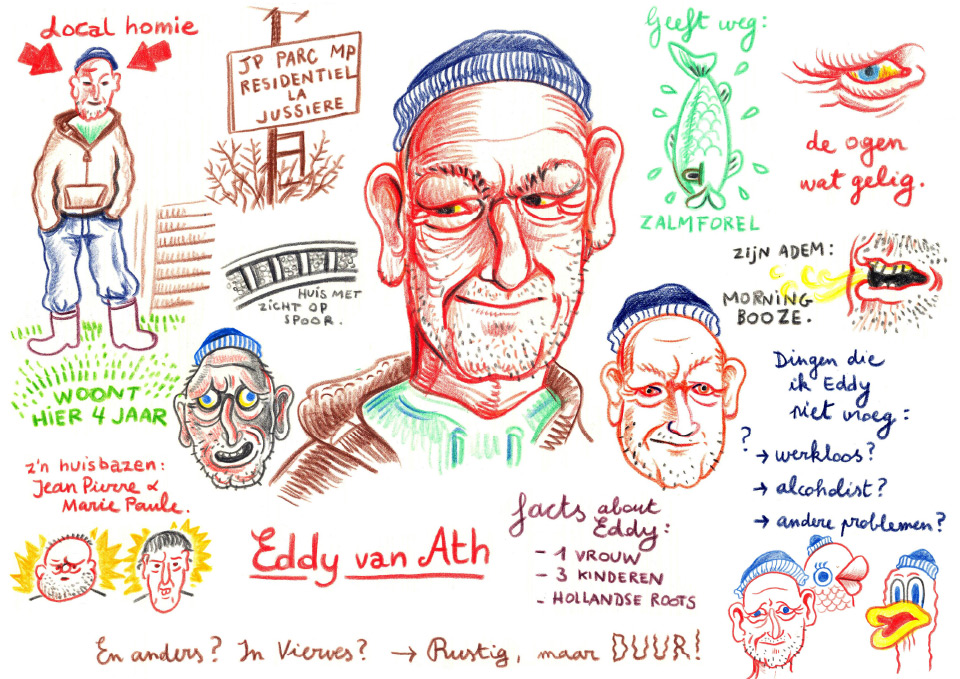 Local homie
JP PARC MP
RESIDENTIEL
LA
JUSSIERE
Geeft weg:
ZALMFOREL
de ogen
wat gelig.
HUIS MET
ZICHT OP
SPOOR.
zijn adem:
MORNING
BOOZE.
WOONT
HIER 4 JAAR
Dingen die
ik Eddy
niet vroeg:
?
→ werkloos?
→ alcoholist?
→ andere problemen?
z'n huisbazen:
Jean Pierre &
Marie Paule.
Eddy van Ath
facts about
Eddy:
- 1 VROUW
- 3 KINDEREN
- HOLLANDSE ROOTS
En anders? In Vierves? → Rustig, maar DUUR!